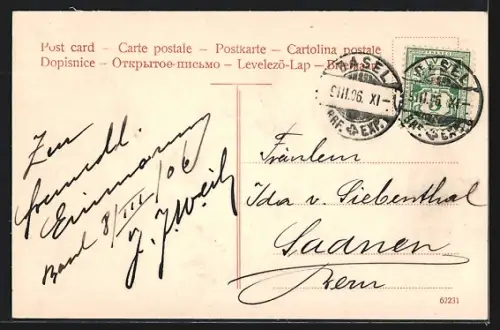 Post card - Carte postale - Postkarte - Cartolina postale
Dopisnice - Открытое-письмо - Levelező-Lap -
BASEL
9.III.06. XI-
BRF. EXP.
BASEL
9.III.06. XI-
BRF. EXP.
5
Zur
freundl.
Erinnerung
Basel 8/III/06
J. J. Weil
Fräulein
Ida v. Siebenthal
Saanen
Bern
62231